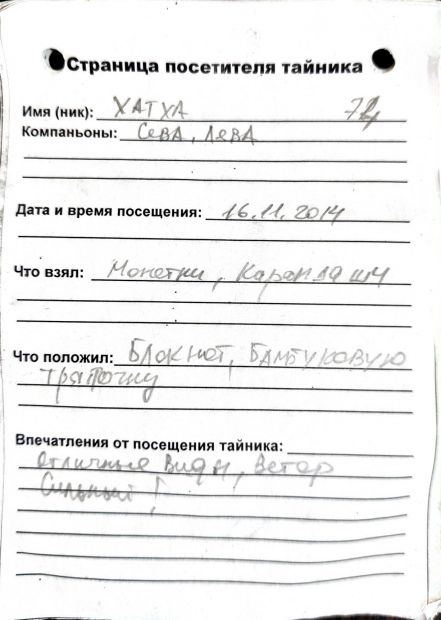 Страница посетителя тайника
Имя (ник): ХАТХА
Компаньоны: СЕВА, ЛЯВА
Дата и время посещения: 16.11.2014
Что взял: Монетки, Карандаши
Что положил: Блокнот, БАМБУКОВУЮ
тряпочку
Впечатления от посещения тайника:
отличные виды, ветер
Сильный!